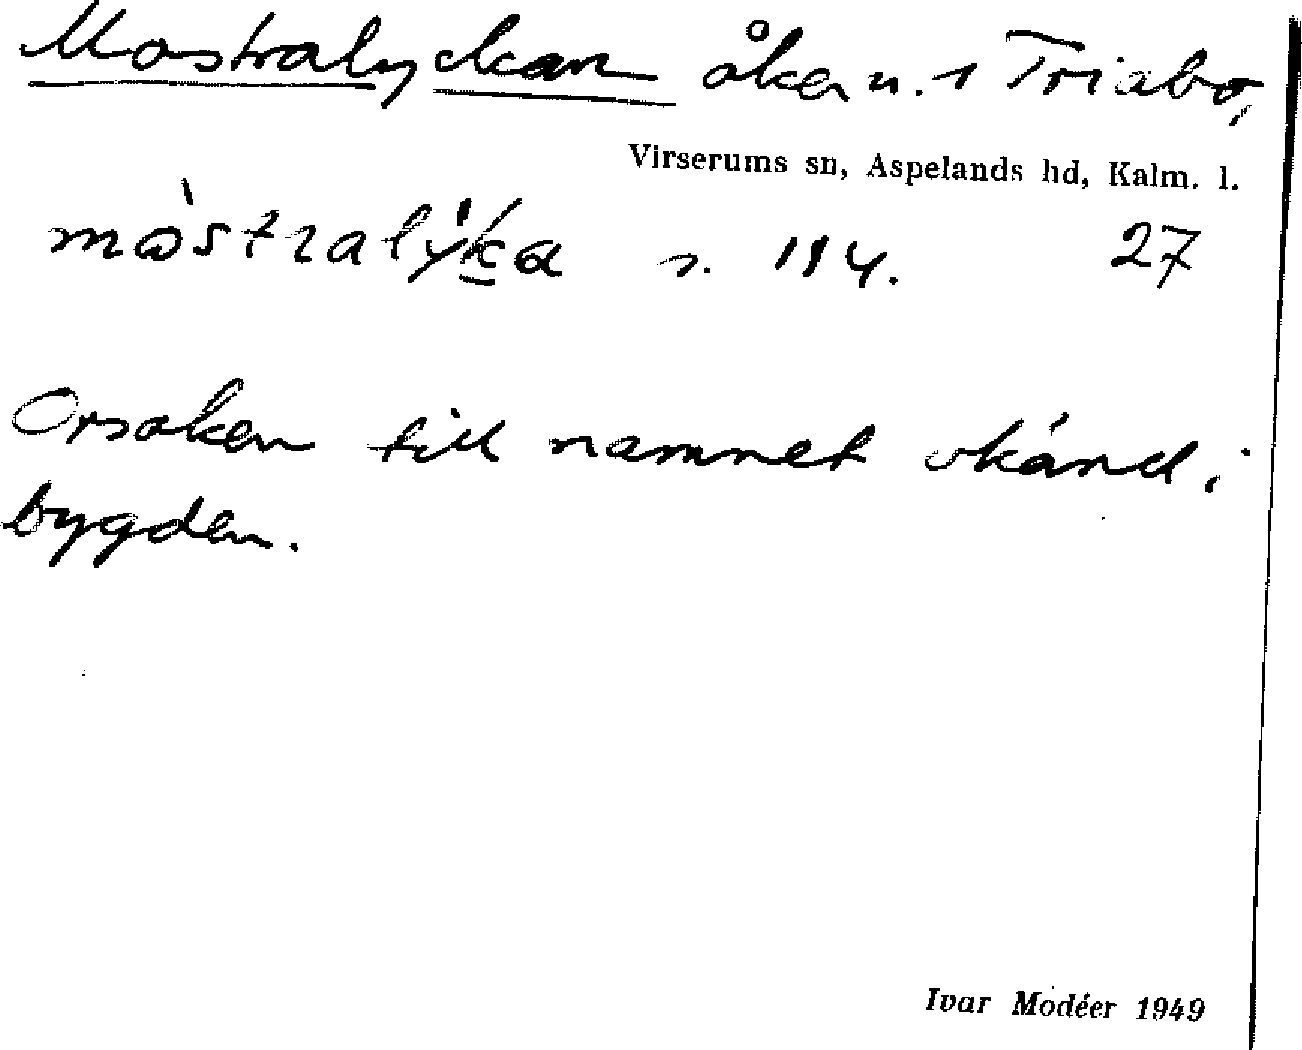 Mostralyckan åker n. 1 Triabo,
Virserums sn, Aspelands hd, Kalm. l.
mòstralýka s. 114. 27
Orsaken till namnet okänd i
bygden.
Ivar Modéer 1949